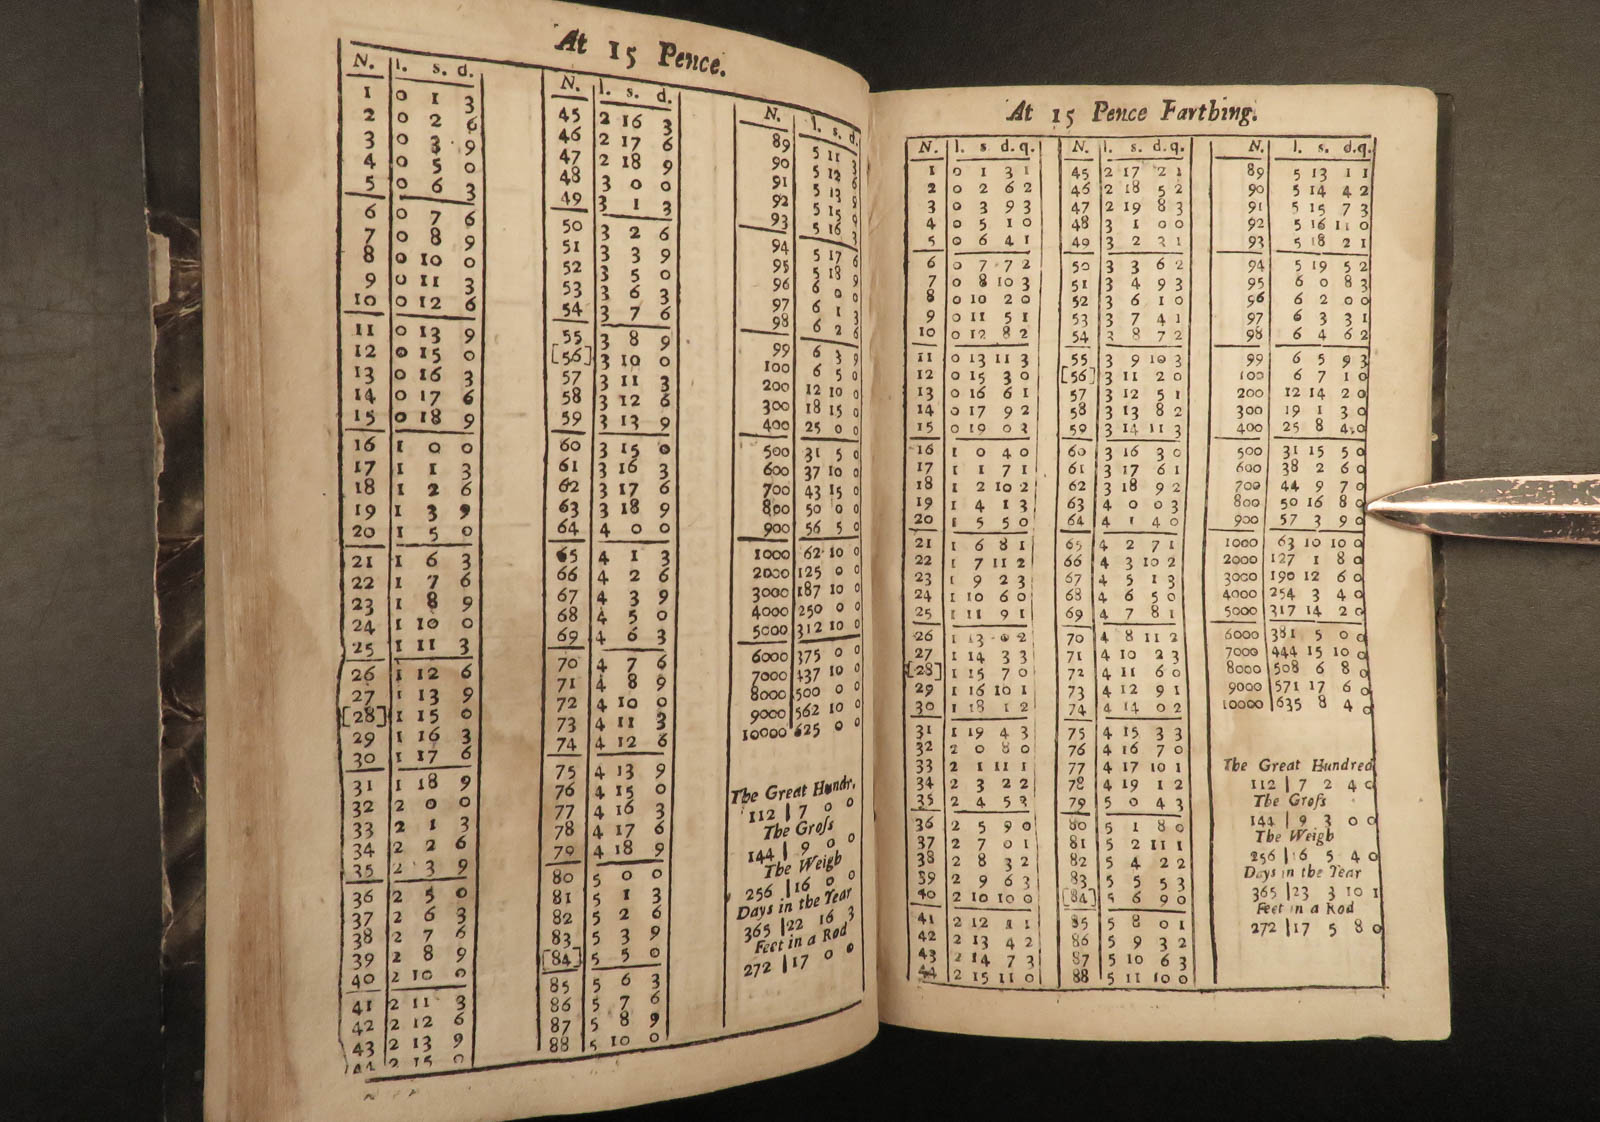 At 15 Pence.
N. l. s. d.
1 0 1 3
2 0 2 6
3 0 3 9
4 0 5 0
5 0 6 3
6 0 7 6
7 0 8 9
8 0 10 0
9 0 11 3
10 0 12 6
11 0 13 9
12 0 15 0
13 0 16 3
14 0 17 6
15 0 18 9
16 1 0 0
17 1 1 3
18 1 2 6
19 1 3 9
20 1 5 0
21 1 6 3
22 1 7 6
23 1 8 9
24 1 10 0
25 1 11 3
26 1 12 6
27 1 13 9
[28] 1 15 0
29 1 16 3
30 1 17 6
31 1 18 9
32 2 0 0
33 2 1 3
34 2 2 6
35 2 3 9
36 2 5 0
37 2 6 3
38 2 7 6
39 2 8 9
40 2 10 0
41 2 11 3
42 2 12 6
43 2 13 9
44 2 15 0
N. l. s. d.
45 2 16 3
46 2 17 6
47 2 18 9
48 3 0 0
49 3 1 3
50 3 2 6
51 3 3 9
52 3 5 0
53 3 6 3
54 3 7 6
55 3 8 9
[56] 3 10 0
57 3 11 3
58 3 12 6
59 3 13 9
60 3 15 0
61 3 16 3
62 3 17 6
63 3 18 9
64 4 0 0
65 4 1 3
66 4 2 6
67 4 3 9
68 4 5 0
69 4 6 3
70 4 7 6
71 4 8 9
72 4 10 0
73 4 11 3
74 4 12 6
75 4 13 9
76 4 15 0
77 4 16 3
78 4 17 6
79 4 18 9
80 5 0 0
81 5 1 3
82 5 2 6
83 5 3 9
[84] 5 5 0
85 5 6 3
86 5 7 6
87 5 8 9
88 5 10 0
N. l. s. d.
89 5 11 3
90 5 12 6
91 5 13 9
92 5 15
93 5 16 3
94 5 17 6
95 5 18 9
96 6 0 0
97 6 1 3
98 6 2 6
99 6 3 9
100 6 5 0
200 12 10 0
300 18 15 0
400 25 0 0
500 31 5 0
600 37 10 0
700 43 15 0
800 50 0 0
900 56 5 0
1000 62 10 0
2000 125 0 0
3000 187 10 0
4000 250 0 0
5000 312 10 0
6000 375 0 0
7000 437 10 0
8000 500 0 0
9000 562 10 0
10000 625 0 0
The Great Hundr.
112 | 7 0 0
The Groſs
144 | 9 0 0
The Weigh
256 | 16 0 0
Days in the Year
365 | 22 16 3
Feet in a Rod
272 | 17 0 0
At 15 Pence Farthing.
N. l. s d. q.
1 0 1 3 1
2 0 2 6 2
3 0 3 9 3
4 0 5 1 0
5 0 6 4 1
6 0 7 7 2
7 0 8 10 3
8 0 10 2 0
9 0 11 5 1
10 0 12 8 2
11 0 13 11 3
12 0 15 3 0
13 0 16 6 1
14 0 17 9 2
15 0 19 0 3
16 1 0 4 0
17 1 1 7 1
18 1 2 10 2
19 1 4 1 3
20 1 5 5 0
21 1 6 8 1
22 1 7 11 2
23 1 9 2 3
24 1 10 6 0
25 1 11 9 1
26 1 13 0 2
27 1 14 3 3
[28] 1 15 7 0
29 1 16 10 1
30 1 18 1 2
31 1 19 4 3
32 2 0 8 0
33 2 1 11 1
34 2 3 2 2
35 2 4 5 3
36 2 5 9 0
37 2 7 0 1
38 2 8 3 2
39 2 9 6 3
40 2 10 10 0
41 2 12 1 1
42 2 13 4 2
43 2 14 7 3
44 2 15 11 0
N. l. s. d. q.
45 2 17 2 1
46 2 18 5 2
47 2 19 8 3
48 3 1 0 0
49 3 2 3 1
50 3 3 6 2
51 3 4 9 3
52 3 6 1 0
53 3 7 4 1
54 3 8 7 2
55 3 9 10 3
[56] 3 11 2 0
57 3 12 5 1
58 3 13 8 2
59 3 14 11 3
60 3 16 3 0
61 3 17 6 1
62 3 18 9 2
63 4 0 0 3
64 4 1 4 0
65 4 2 7 1
66 4 3 10 2
67 4 5 1 3
68 4 6 5 0
69 4 7 8 1
70 4 8 11 2
71 4 10 2 3
72 4 11 6 0
73 4 12 9 1
74 4 14 0 2
75 4 15 3 3
76 4 16 7 0
77 4 17 10 1
78 4 19 1 2
79 5 0 4 3
80 5 1 8 0
81 5 2 11 1
82 5 4 2 2
83 5 5 5 3
[84] 5 6 9 0
85 5 8 0 1
86 5 9 3 2
87 5 10 6 3
88 5 11 10 0
N. l. s. d. q.
89 5 13 1 1
90 5 14 4 2
91 5 15 7 3
92 5 16 11 0
93 5 18 2 1
94 5 19 5 2
95 6 0 8 3
96 6 2 0 0
97 6 3 3 1
98 6 4 6 2
99 6 5 9 3
100 6 7 1 0
200 12 14 2 0
300 19 1 3 0
400 25 8 4 0
500 31 15 5 0
600 38 2 6 0
700 44 9 7 0
800 50 16 8 0
900 57 3 9 0
1000 63 10 10 0
2000 127 1 8 0
3000 190 12 6 0
4000 254 3 4 0
5000 317 14 2 0
6000 381 5 0 0
7000 444 15 10 0
8000 508 6 8 0
9000 571 17 6 0
10000 635 8 4 0
The Great Hundred
112 | 7 2 4 0
The Groſs
144 | 9 3 0 0
The Weigh
256 | 16 5 4 0
Days in the Year
365 | 23 3 10 1
Feet in a Rod
272 | 17 5 8 0